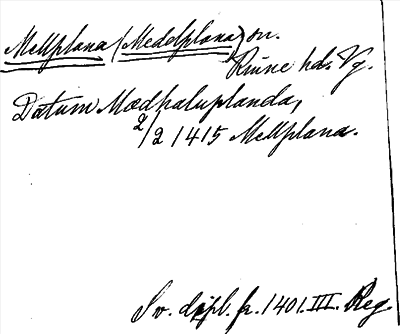 Mellplana (Meddplana) sn.
Kinne hd. Vg.
Datum Mædhaluplanda,
2/2 1415 Mellplana.
Sv. dipl. fr. 1401. III. Reg